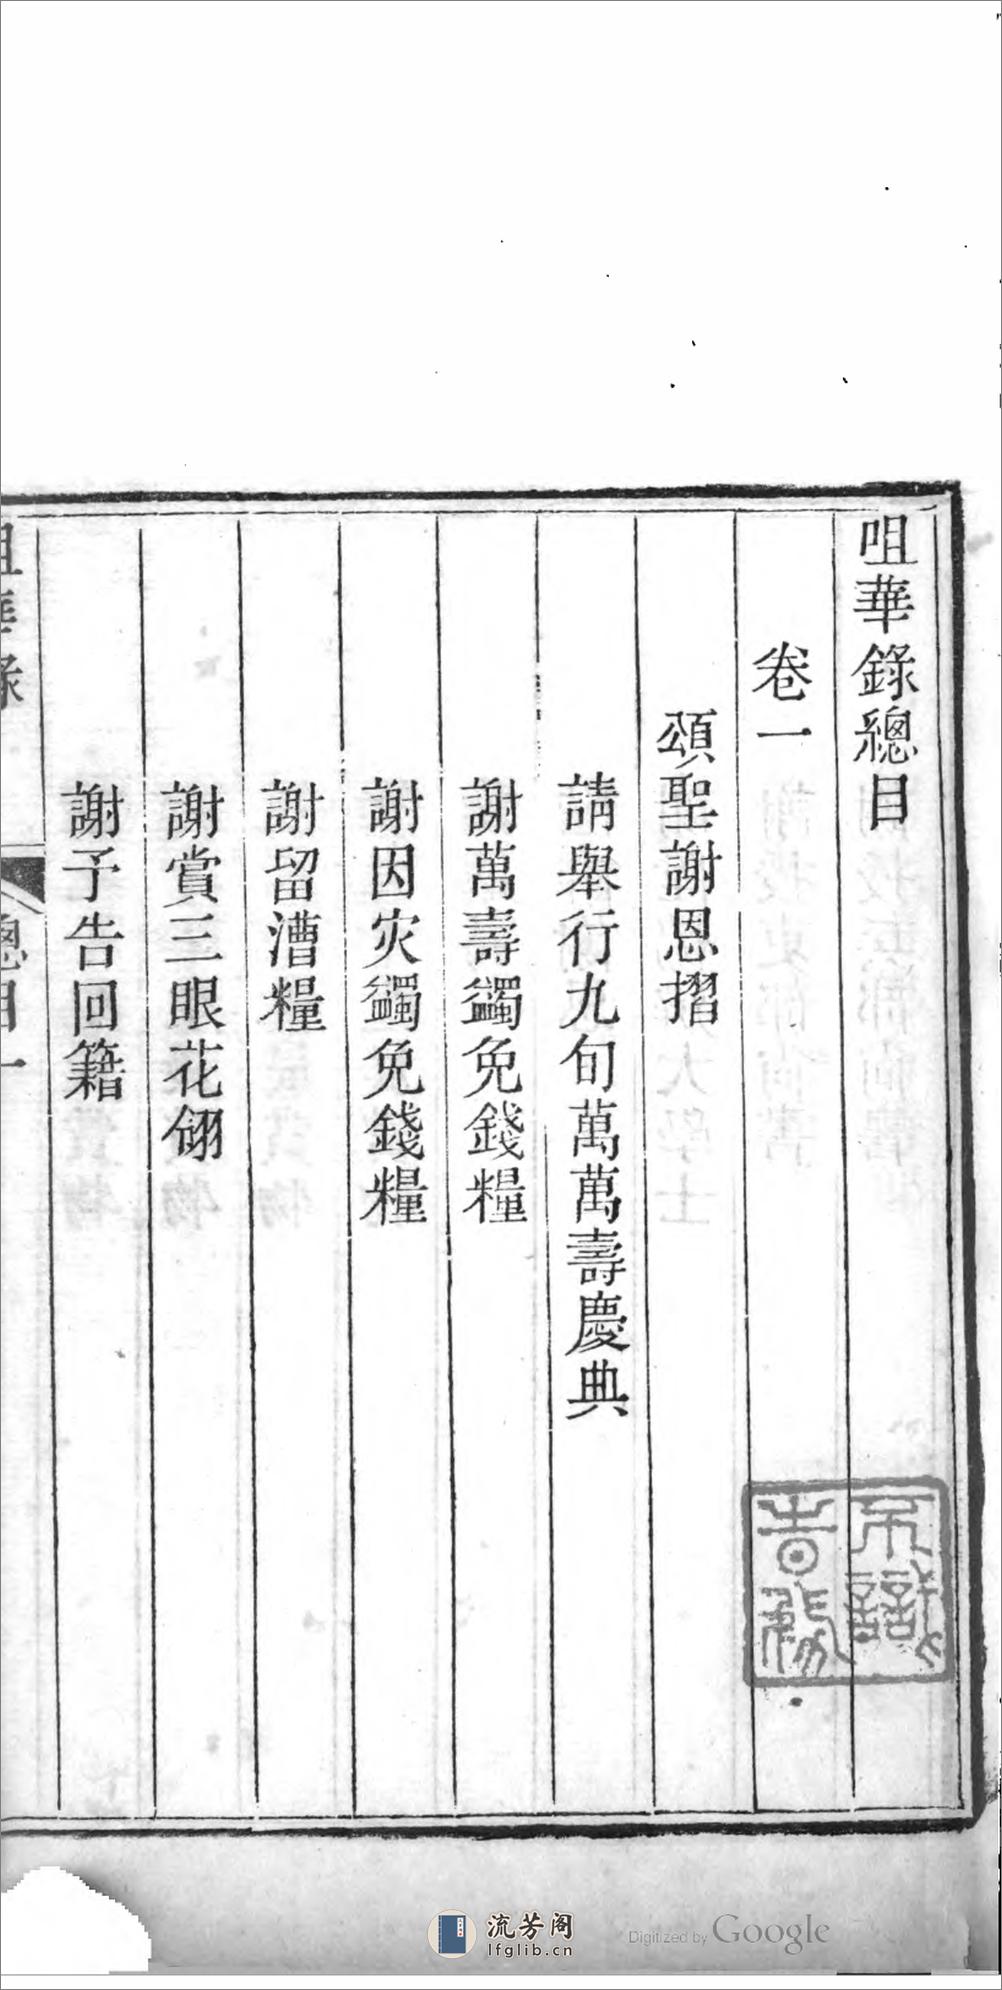 咀華錄總目
卷一
頌聖謝恩摺
請舉行九旬萬萬壽慶典
謝萬壽蠲免錢糧
謝因灾蠲免錢糧
謝留漕糧
謝賞三眼花翎
謝予告回籍
咀華錄
總目一
流芳阁
lfglib.cn
Digitized by Google